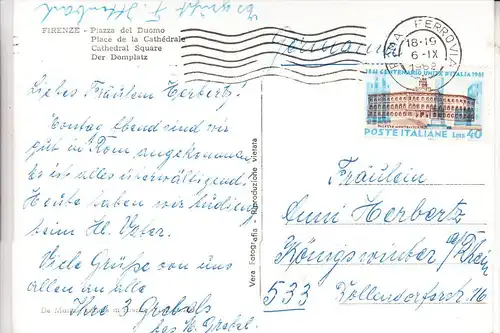 Es grüßt F.
FIRENZE - Piazza del Duomo
Place de la Cathédrale
Cathedral Square
Der Domplatz
Germania
ROMA FERROVIA
18-19
6-IX
1962
1861 CENTENARIO UNITÀ D'ITALIA 1961
POSTE ITALIANE LIRE 40
Liebes Fräulein Herbertz!
Sonntag Abend sind wir
gut in Rom angekommen.
Es ist alles überwältigend.
Heute haben wir Audienz
beim Hl. Vater.
Viele Grüße von uns
allen an alle
Ihre 3 Grobels
Vera Fotografia - Riproduzione vietata
Fräulein
Herbertz
Königswinter a/Rhein
533 Dollendorferstr. 116